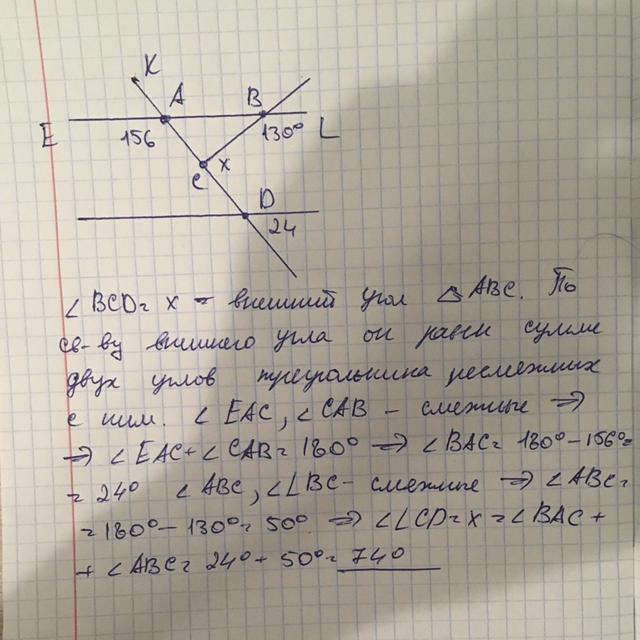 K
A
B
E
156
130°
L
C
x
D
24
∠BCD = x - внешний угол △ABC. По
св-ву внешнего угла он равен сумме
двух углов треугольника несмежных
с ним. ∠EAC, ∠CAB - смежные ⇒
⇒ ∠EAC + ∠CAB = 180° ⇒ ∠BAC = 180° - 156° =
= 24° ∠ABC, ∠LBC - смежные ⇒ ∠ABC =
= 180° - 130° = 50° ⇒ ∠LCD = x = ∠BAC +
+ ∠ABC = 24° + 50° = 74°